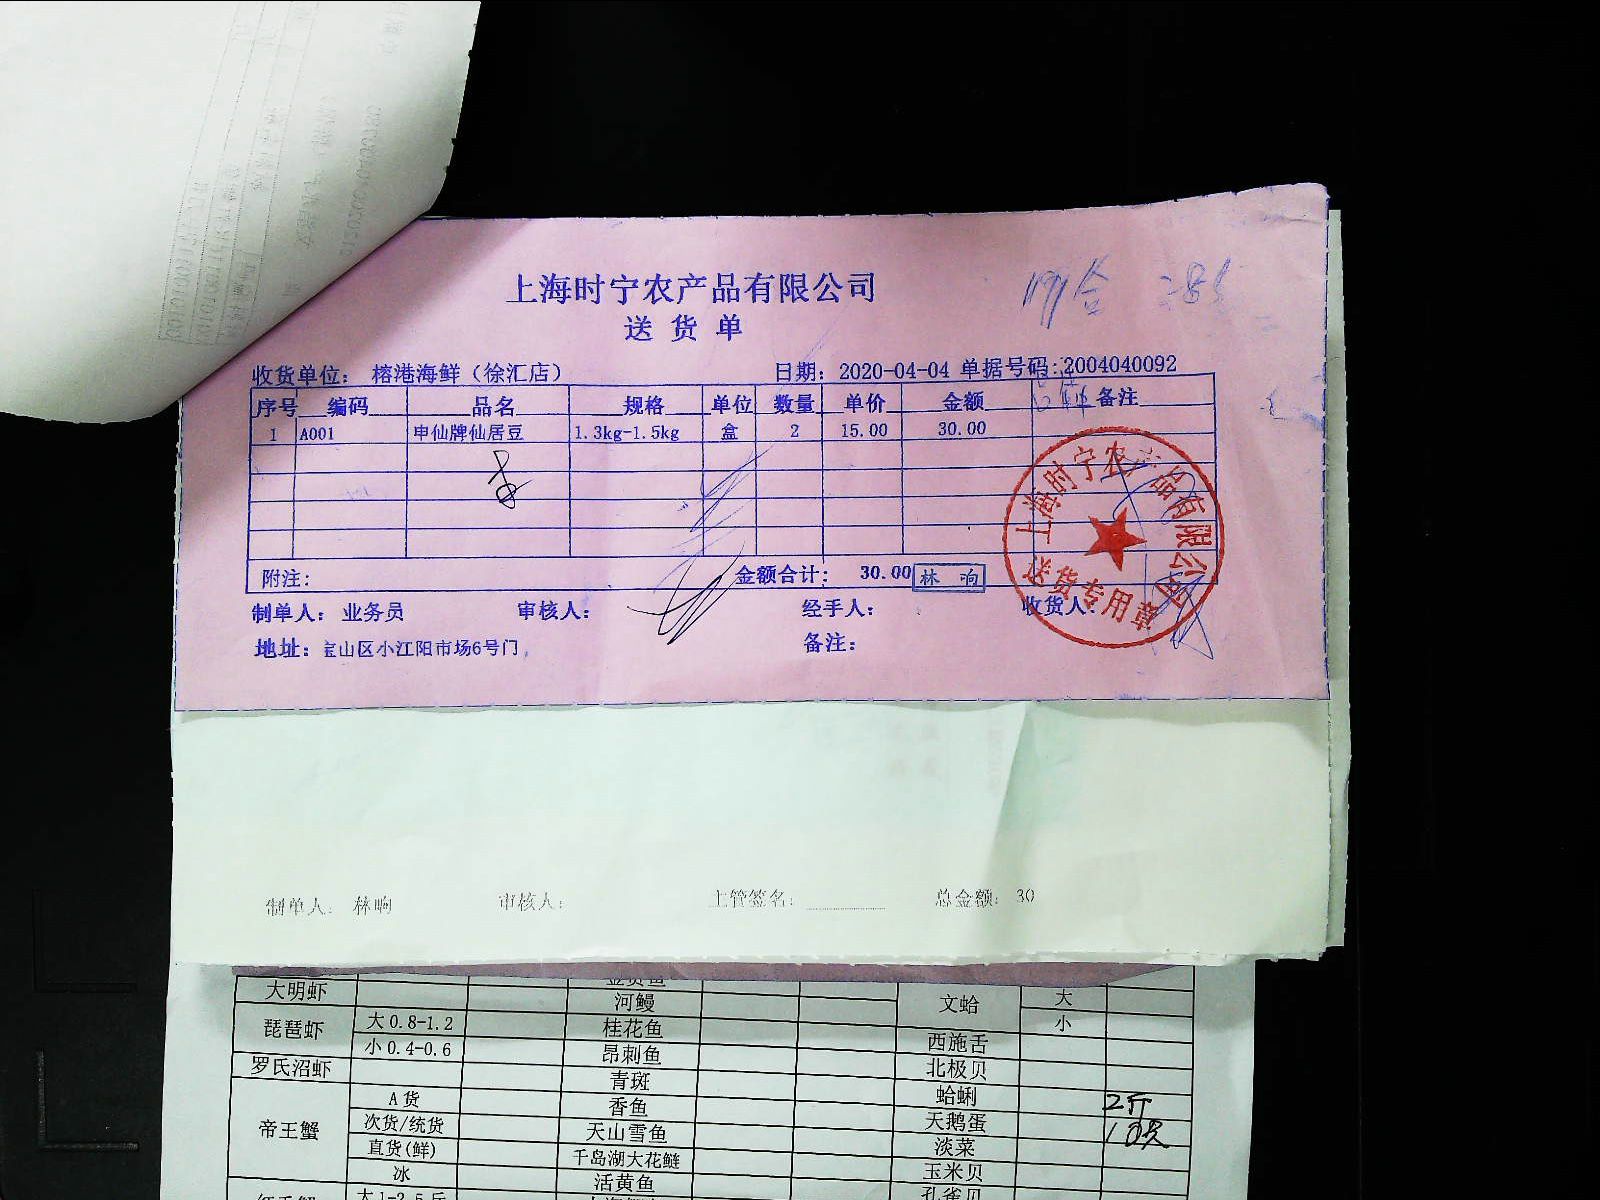 上海时宁农产品有限公司
送货单
收货单位： 榕港海鲜（徐汇店） 日期： 2020-04-04 单据号码:2004040092
序号 编码 品名 规格 单位 数量 单价 金额 备注
1 A001 申仙牌仙居豆 1.3kg-1.5kg 盒 2 15.00 30.00
上海时宁农产品有限公司
送货专用章
附注： 金额合计： 30.00 林响
制单人： 业务员 审核人： 经手人： 收货人
地址： 宝山区小江阳市场6号门 备注：
制单人： 林响 审核人： 主管签名： 总金额： 30
大明虾 河鳗 文蛤 大
琵琶虾 大0.8-1.2 桂花鱼 小
小0.4-0.6 昂刺鱼 西施舌
罗氏沼虾 青斑 北极贝
帝王蟹 A货 香鱼 蛤蜊 2斤
次货/统货 天山雪鱼 天鹅蛋
直货(鲜) 千岛湖大花鲢 淡菜
冰 活黄鱼 玉米贝
大1-2.5斤 孔雀贝